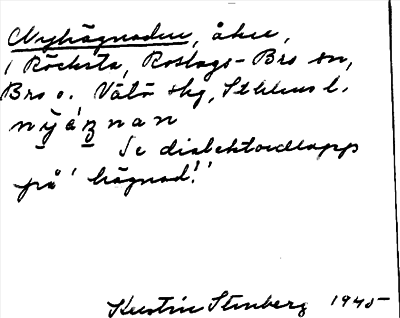 Nyhägnaden, åker,
i Röcksta, Roslags-Bro sn,
Bro o. Vätö skg, Sthlms l.
nyäznan
Se dialektordlapp
på 'hägnad!'
Kerstin Stenberg 1945